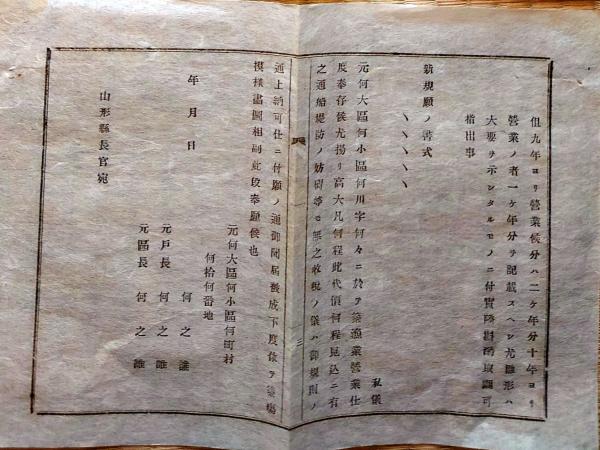 但九年ヨリ營業候分ハ二ケ年分十年ヨリ
營業ノ者一ケ年分ヲ記載スヘシ尤雛形ハ
大要ヲ示シタルモノニ付實際斟酌取調可
指出事
新規願ノ書式
、、、、、
私儀
元何大區何小區何川字何々ニ於テ簗漁業營業仕
度奉存候尤揚リ高大凡何程此代價何程見込ニ有
之通船堤防ノ妨碍等モ無之收税ノ儀ハ御規則ノ
三
通上納可仕ニ付願ノ通御聞届被成下度依テ簗場
摸樣畵圖相副此段奉願候也
元何大區何小區何町村
何拾何番地
年月日
何之誰
元戸長 何之誰
元區長 何之誰
山形縣長官宛